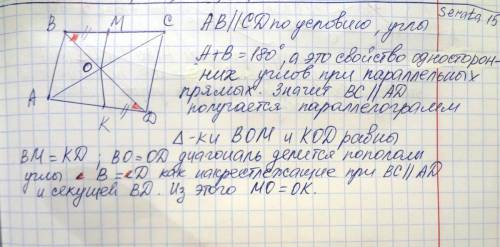 Senata 15
B M C
AB//CD по условию, углы
A+B=180°, а это свойство односторон-
O
них углов при параллельных
A
прямых. Значит BC//AD
K D
получается параллелограмм
Δ-ки BOM и KOD равны
BM=KD; BO=OD диагональ делится пополам
углы ∠B=∠D как накрестлежащие при BC//AD
и секущей BD. Из этого MO=OK.